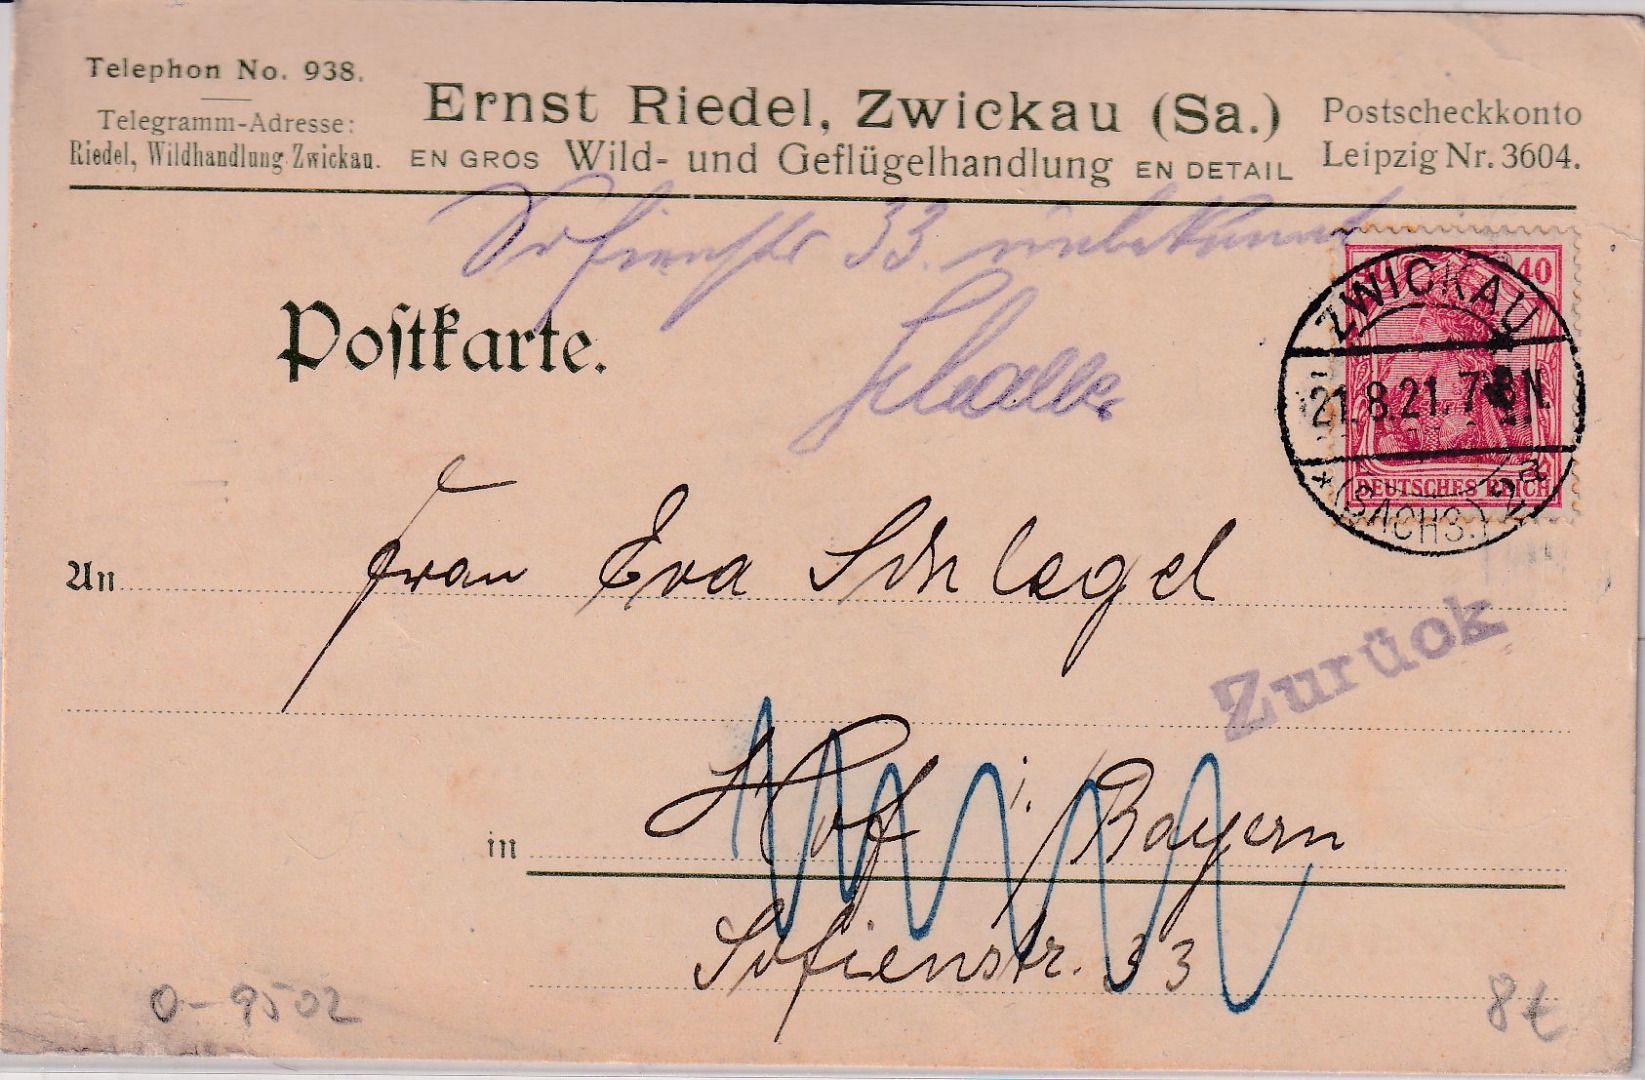 Telephon No. 938.
Telegramm-Adresse:
Riedel, Wildhandlung Zwickau.
Ernst Riedel, Zwickau (Sa.)
EN GROS Wild- und Geflügelhandlung EN DETAIL
Postscheckkonto
Leipzig Nr. 3604.
Sofienstr 33. unbekannt
Postkarte.
40
DEUTSCHES REICH
ZWICKAU
21.8.21. 7-8N.
* (SACHS.) 2a
An Frau Eva Schlegel
Zurück
in Hof i. Bayern
Sofienstr. 33
0-9502
8€